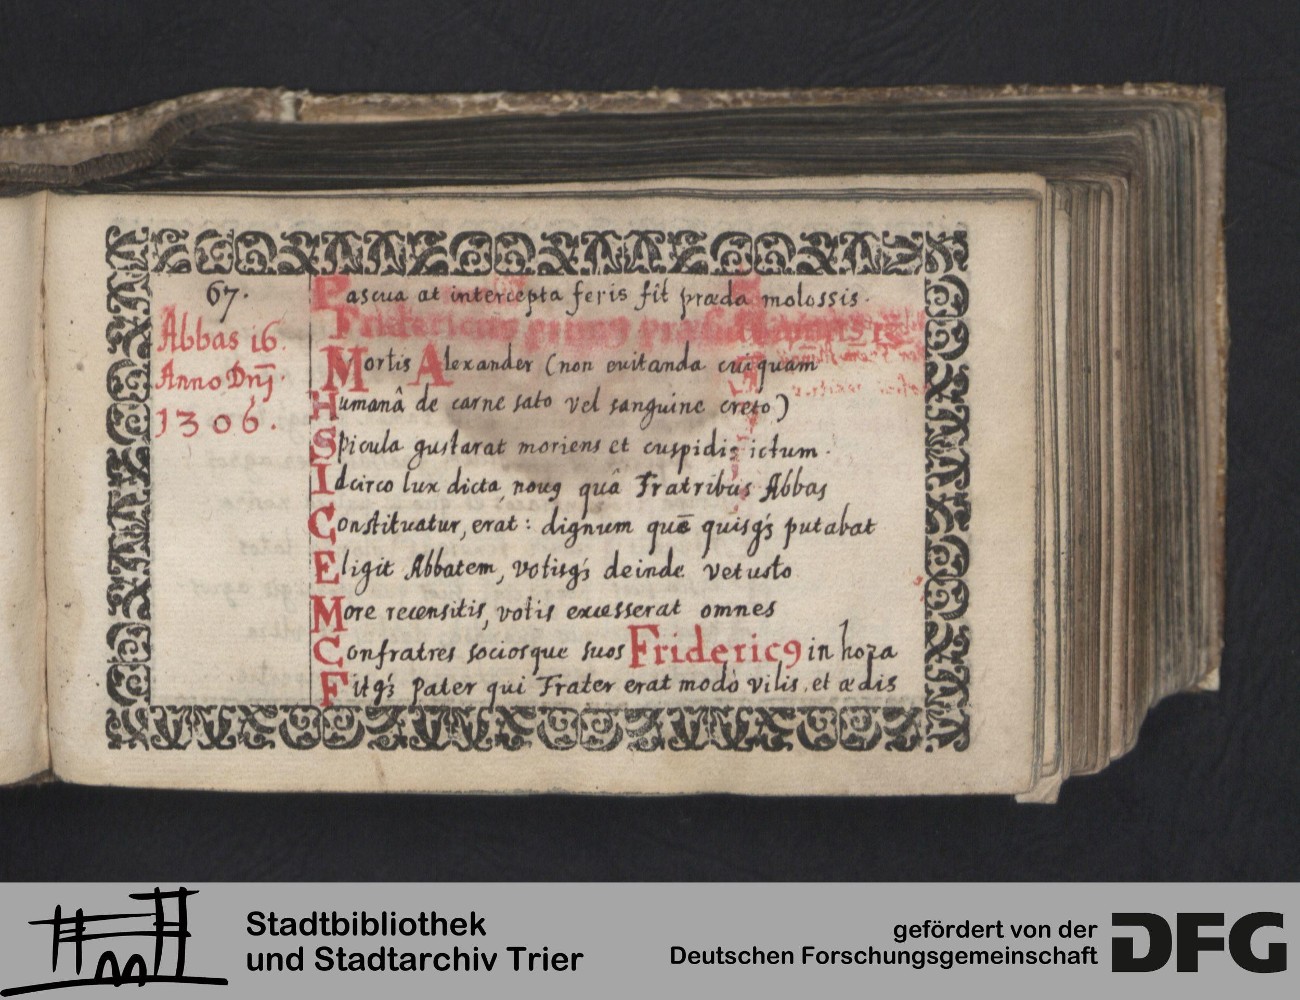 67.
Abbas 16.
Anno Dnj̄.
1306.
Pascua at intercepta feris fit præda molossis.
Fridericus primus
Mortis Alexander (non euitanda cuiquam
Humanâ de carne sato vel sanguine creto)
Spicula gustarat moriens et cuspidis ictum.
Idcirco lux dicta, nouꝯ quâ Fratribus Abbas
Constituatur, erat: dignum quē quisqꝫ putabat
Eligit Abbatem, votisqꝫ deinde vetusto
More recensitis, votis excesserat omnes
Confratres sociosque suos Fridericꝯ in hora
Fitqꝫ Pater qui Frater erat modò vilis, et ædis
Stadtbibliothek
und Stadtarchiv Trier
gefördert von der
Deutschen Forschungsgemeinschaft
DFG